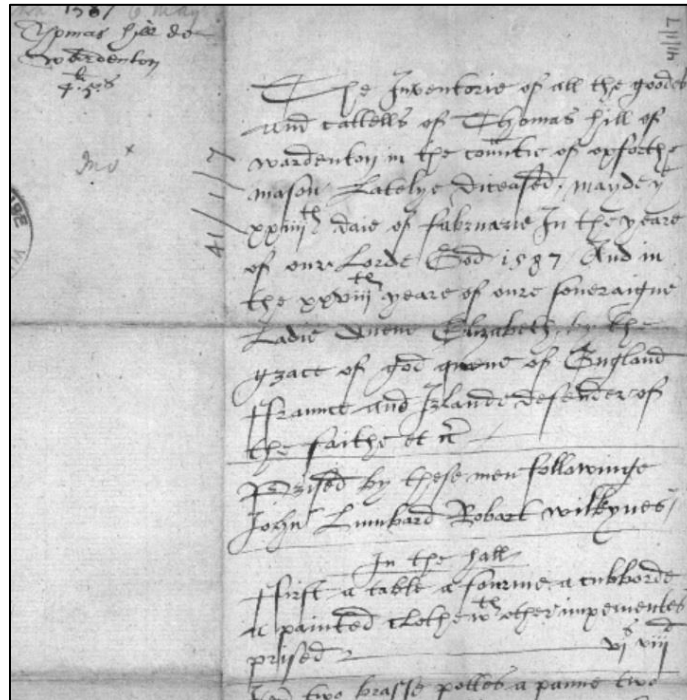 1587 6 May
Thomas Hill de
Wardenton
41/1/7
Inv
41/1/7
The Inventorie of all the goodes
and cattells of Thomas Hill of
wardenton in the countie of oxforthe
mason Latelye diceased, mayde y
xxiiij th daie of fabruarie In the yeare
of oure Lorde God 1587 And in
the xxviij th yeare of oure soveraigne
Ladie Quene Elizabeth, by the
grace of god quene of England
ffraunce and Irlande defender of
the faithe et c
Prised by these men followinge
John Lumbard Robart wilkynes
In the hall
ffirst a table a fourme a cubborde
a painted clothe wth other impementes
prised vi s viii d
two brasse pottes a panne two